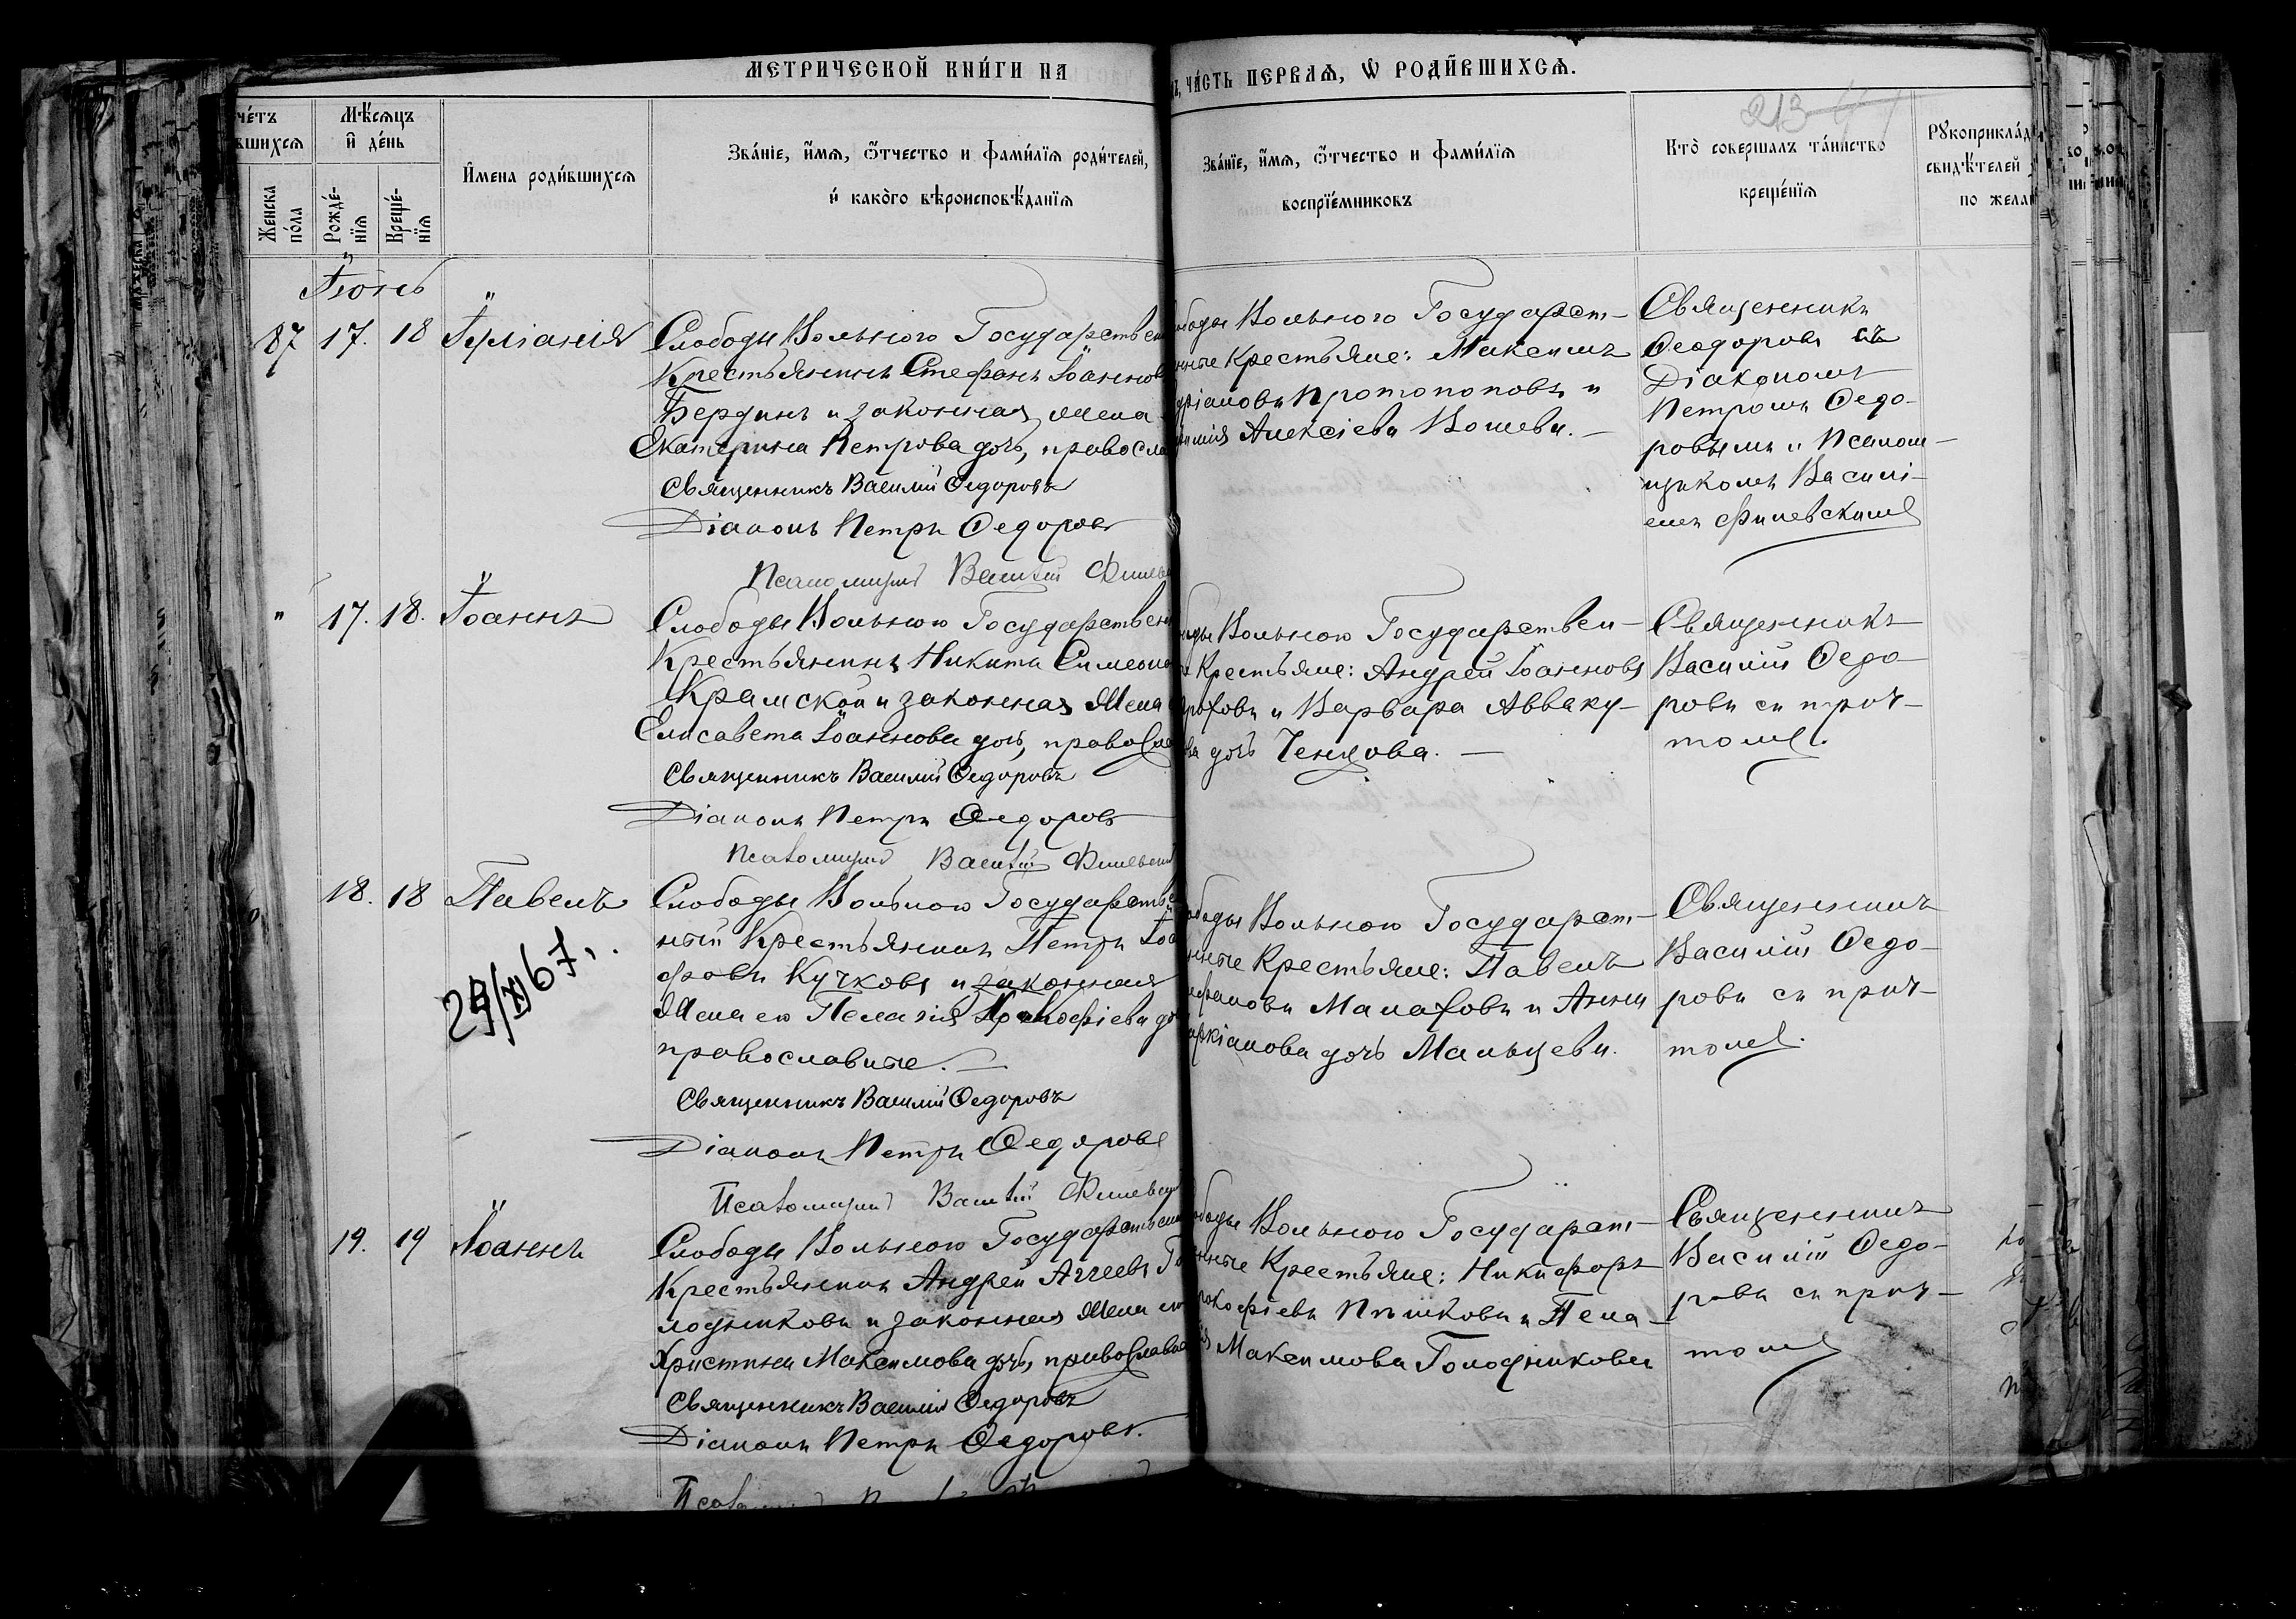 МЕТРИЧЕСКОЙ КНИ́ГИ НА
ЧА́СТЬ ПЕРВАѦ, Ѡ РОДИ́ВШИХСѦ.
че́тъ
вшихсѧ
Же́нска
по́ла
Мѣ́сѧцъ
и҆ де́нь
Рожде́-
нїѧ
Креще́-
нїѧ
И҆мена роди́вшихсѧ
Зва́нїе, и҆́мѧ, ѻ҆́тчество и фами́лїѧ роди́телей,
и҆ како́го вѣроисповѣ́данїѧ
Зва́нїе, и҆́мѧ, ѻ҆́тчество и фами́лїѧ
воспрїе́мниковъ
213
Кто̀ соверша́лъ та́инство
креще́нїѧ
Рꙋкоприкла́д
свидѣ́телей
по жела
Іюнь
87 17. 18
Слободы Вольного Государствен
Крестьянинъ Стефанъ Іоаннов
Бердинъ и законная жена
Екатерина Петрова дочь, правосла
Священникъ Василій Ѳедоровъ
Діаконъ Петръ Ѳедоровъ
Псаломщикъ Василій Филевс
ободы Вольного Государст-
нные Крестьяне: Максимъ
Протопоповъ и
Алексіева Вошева.
Священникъ
Ѳеодоровъ съ
Діакономъ
Петромъ Ѳедо-
ровымъ и Псалом-
щикомъ Василі-
емъ Филевскимъ
" 17. 18. Іоаннъ
Слободы Вольного Государствен
Крестьянинъ Никита Симеоно
Крамской и законная жена
Елисавета Іоаннова дочь, правосла
Священникъ Василій Ѳедоровъ
Діаконъ Петръ Ѳедоровъ
Псаломщикъ Василій Филевскій
Вольного Государствен-
Крестьяне: Андрей Іоанновъ
и Варвара Авваку-
ва дочь Ченцова.
Священникъ
Василій Ѳедо-
ровъ съ прич-
томъ.
18. 18 Павелъ
67
Слободы Вольного Государств
ный Крестьянинъ Петръ Іоа
Кучковъ и законная
жена его Пелагія Прокофіева до
православные.
Священникъ Василій Ѳедоровъ
Діаконъ Петръ Ѳедоровъ
Псаломщикъ Василій Филевскі
ободы Вольного Государст-
нные Крестьяне: Павелъ
Малаховъ и Анна
аркіанова дочь Мальцева.
Священникъ
Василій Ѳедо-
ровъ съ прич-
томъ.
19. 19 Іоаннъ
Слободы Вольного Государствен
Крестьянинъ Андрей Аггеевъ Го
лодниковъ и законная жена его
Христина Максимова дочь, православн
Священникъ Василій Ѳедоровъ
Діаконъ Петръ Ѳедоровъ.
ободы Вольного Государст-
нные Крестьяне: Никифоръ
рокофіевъ Пѣшковъ и Пела-
Максимова Голодникова
Священникъ
Василій Ѳедо-
ровъ съ прич-
томъ